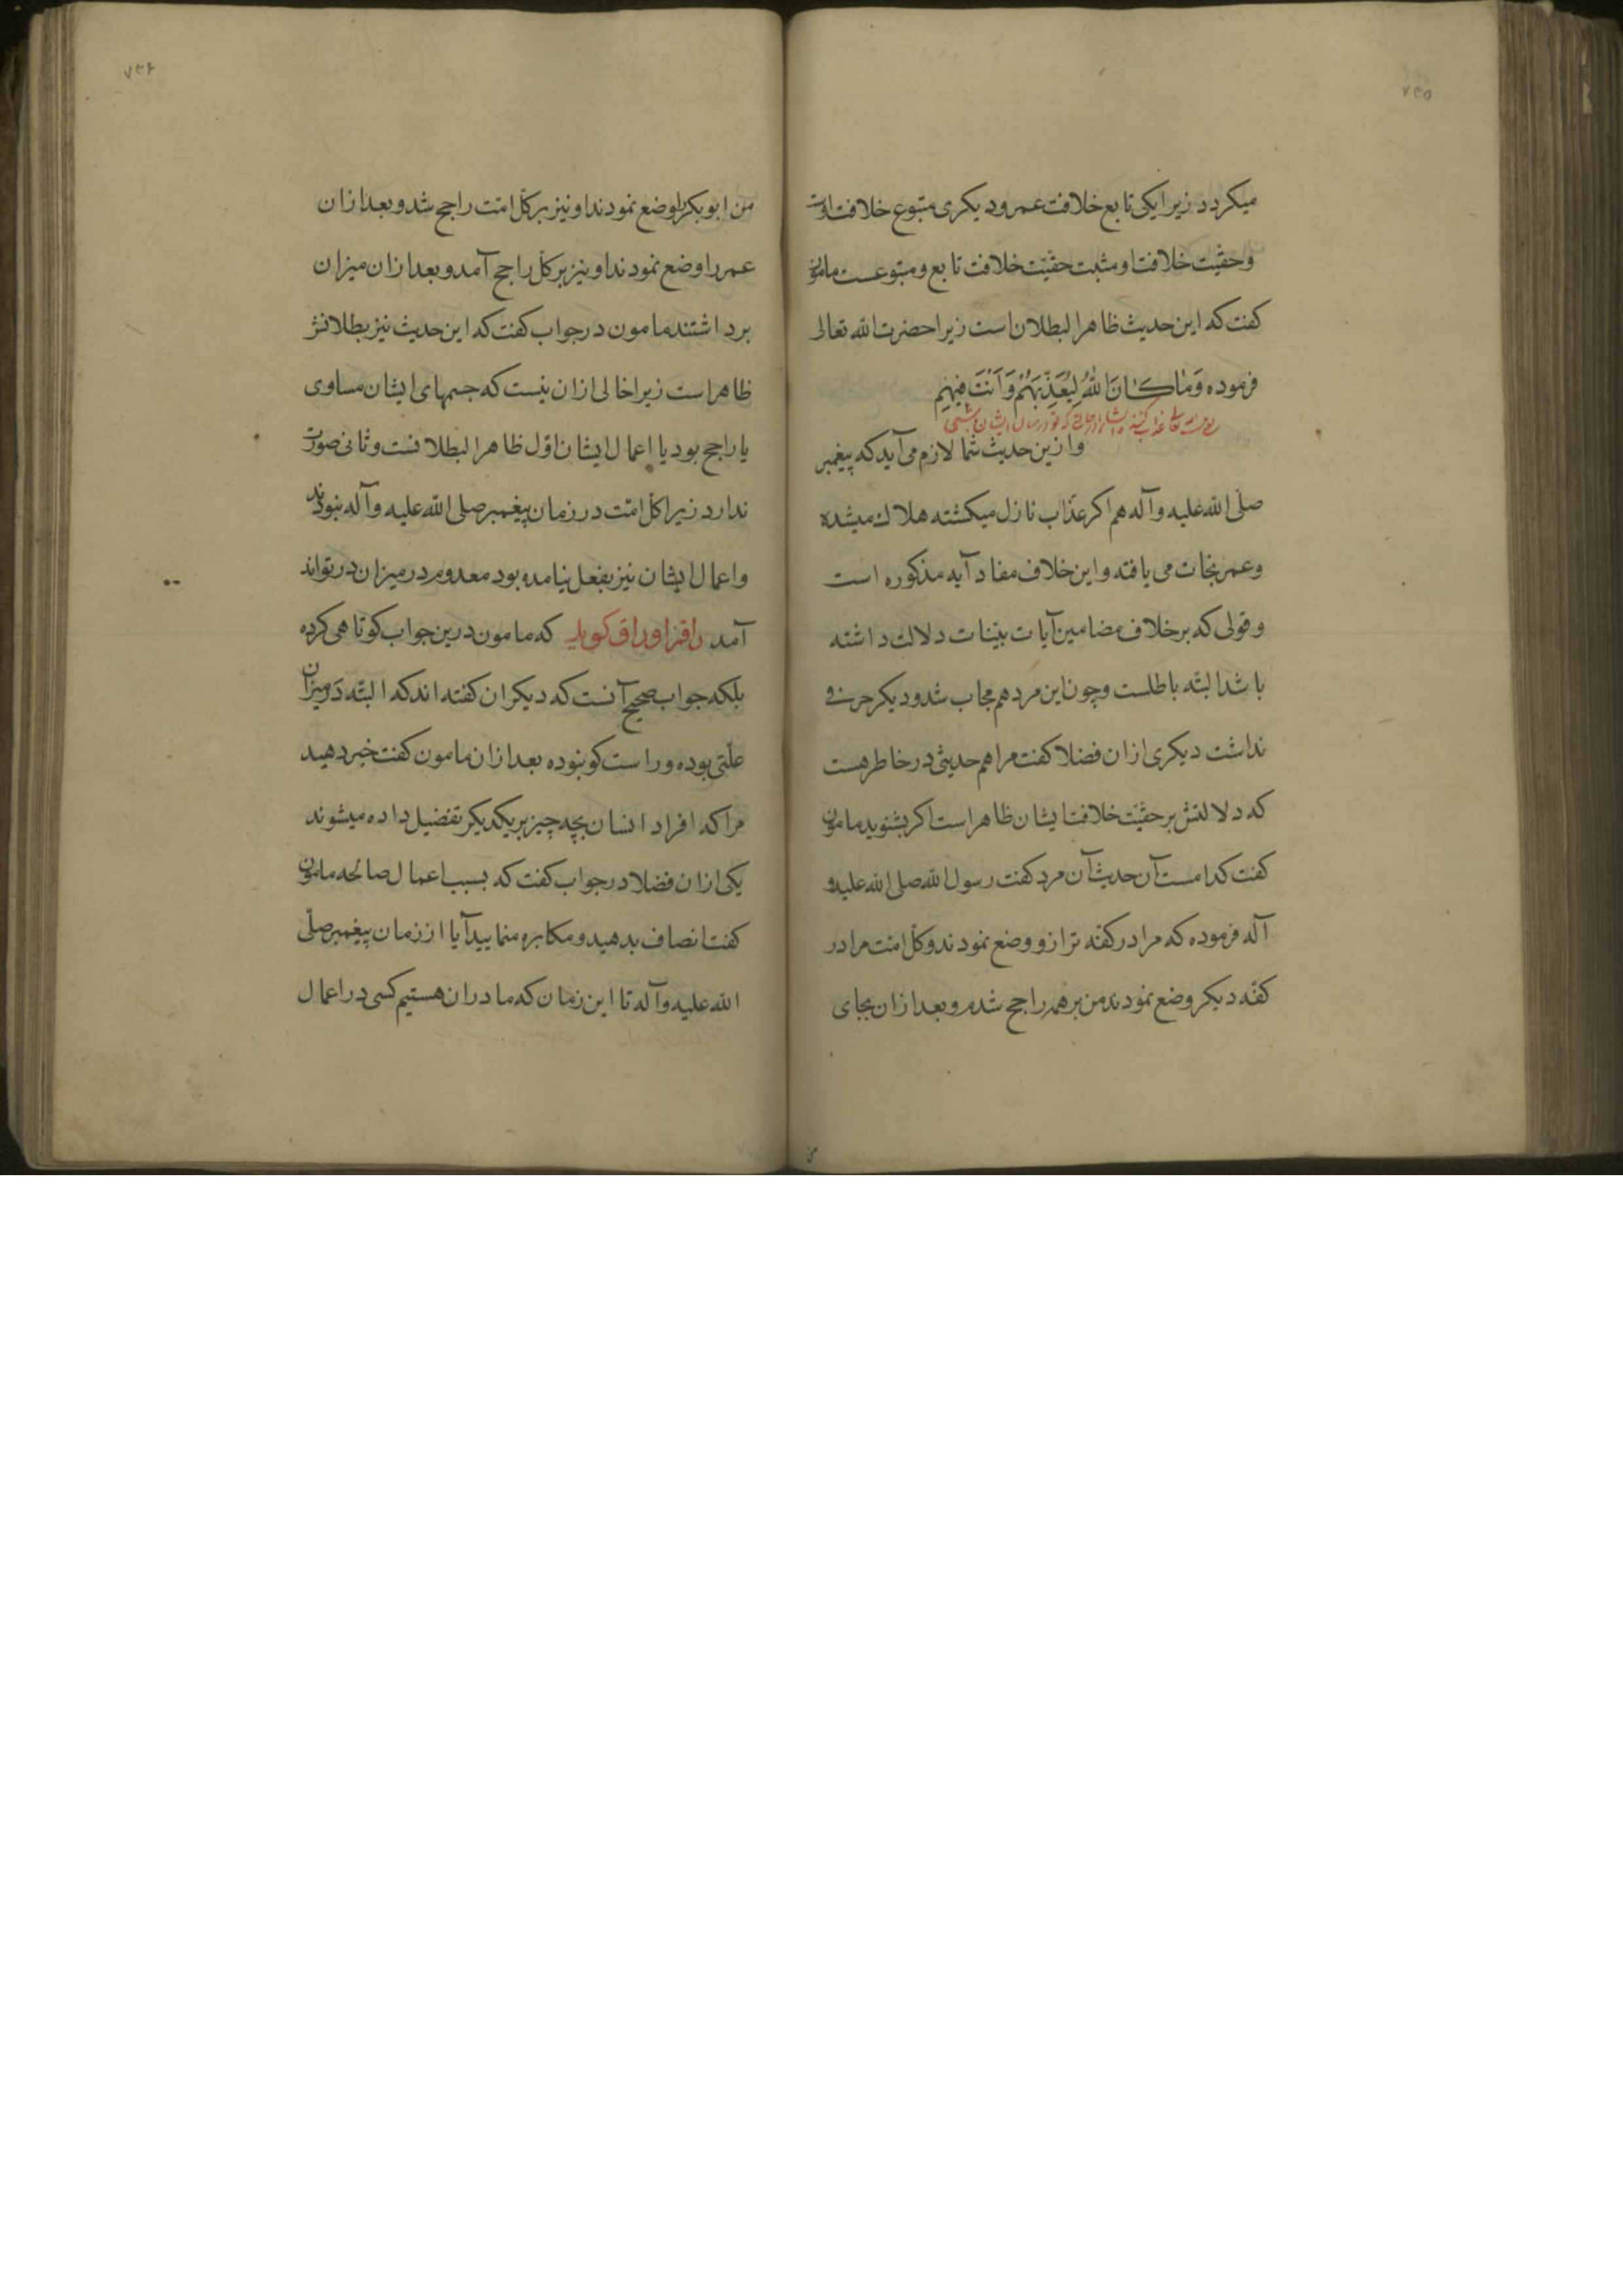 ۷۳۵
میکردد زیرا یکی تابع خلافت عمر و دیکری متبوع خلافت اوست
و حقیّت خلافت او مثبت حقیّت خلافت تابع و متبوعست مامون
کفت که این حدیث ظاهر البطلان است زیرا حضرت الله تعالی
فرموده وَمَا کَانَ اللّٰهُ لِیُعَذِّبَهُمْ وَاَنْتَ فِیهِم
وازین حدیث شما لازم می آید که پیغمبر
صلّی الله علیه وآله هم اکر عذاب نازل میکشته هلاک میشده
وعمر نجات می یافته واین خلاف مفاد آیه مذکوره است
وقولی که بر خلاف مضامین آیات بیّنات دلالت داشته
باشد البتّه باطلست وچون این مرد هم مجاب شد ودیکر حرفی
نداشت دیکری ازان فضلا کفت مرا هم حدیثی در خاطر هست
که دلالتش بر حقیّت خلافت ایشان ظاهر است اکر بشنوید مامون
کفت کدامست آن حدیث آن مرد کفت رسول الله صلی الله علیه و
آله فرموده که مرا در کفّه ترازو وضع نمودند وکل امّت مرا در
کفّه دیکر وضع نمودند من بر همه راجح شدم وبعد ازان بجای
۷۳۶
من ابوبکر را وضع نمودند او نیز بر کل امّت راجح شد وبعد ازان
عمر را وضع نمودند او نیز بر کل راجح آمد وبعد ازان میزان
برداشتند مامون در جواب کفت که این حدیث نیز بطلانش
ظاهر است زیرا خالی ازان نیست که جسمهای ایشان مساوی
یا راجح بود یا اعمال ایشان اوّل ظاهر البطلانست وثانی صورت
ندارد زیرا کل امّت در زمان پیغمبر صلی الله علیه وآله نبودند
واعمال ایشان نیز بفعل نیامده بود معدوم در میزان در تواند
آمد راقم اوراق کوید که مامون درین جواب کوتاهی کرده
بلکه جواب صحیح آنست که دیکران کفته اند که البتّه در میزان
علّتی بوده وراست کو نبوده بعد ازان مامون کفت خبر دهید
مرا که افراد انسان بچه چیز بر یکدیکر تفضیل داده میشوند
یکی ازان فضلا در جواب کفت که بسبب اعمال صالحه مامون
کفت انصاف بدهید ومکابره منمایید آیا از زمان پیغمبر صلّی
الله علیه وآله تا این زمان که ما دران هستیم کسی در اعمال